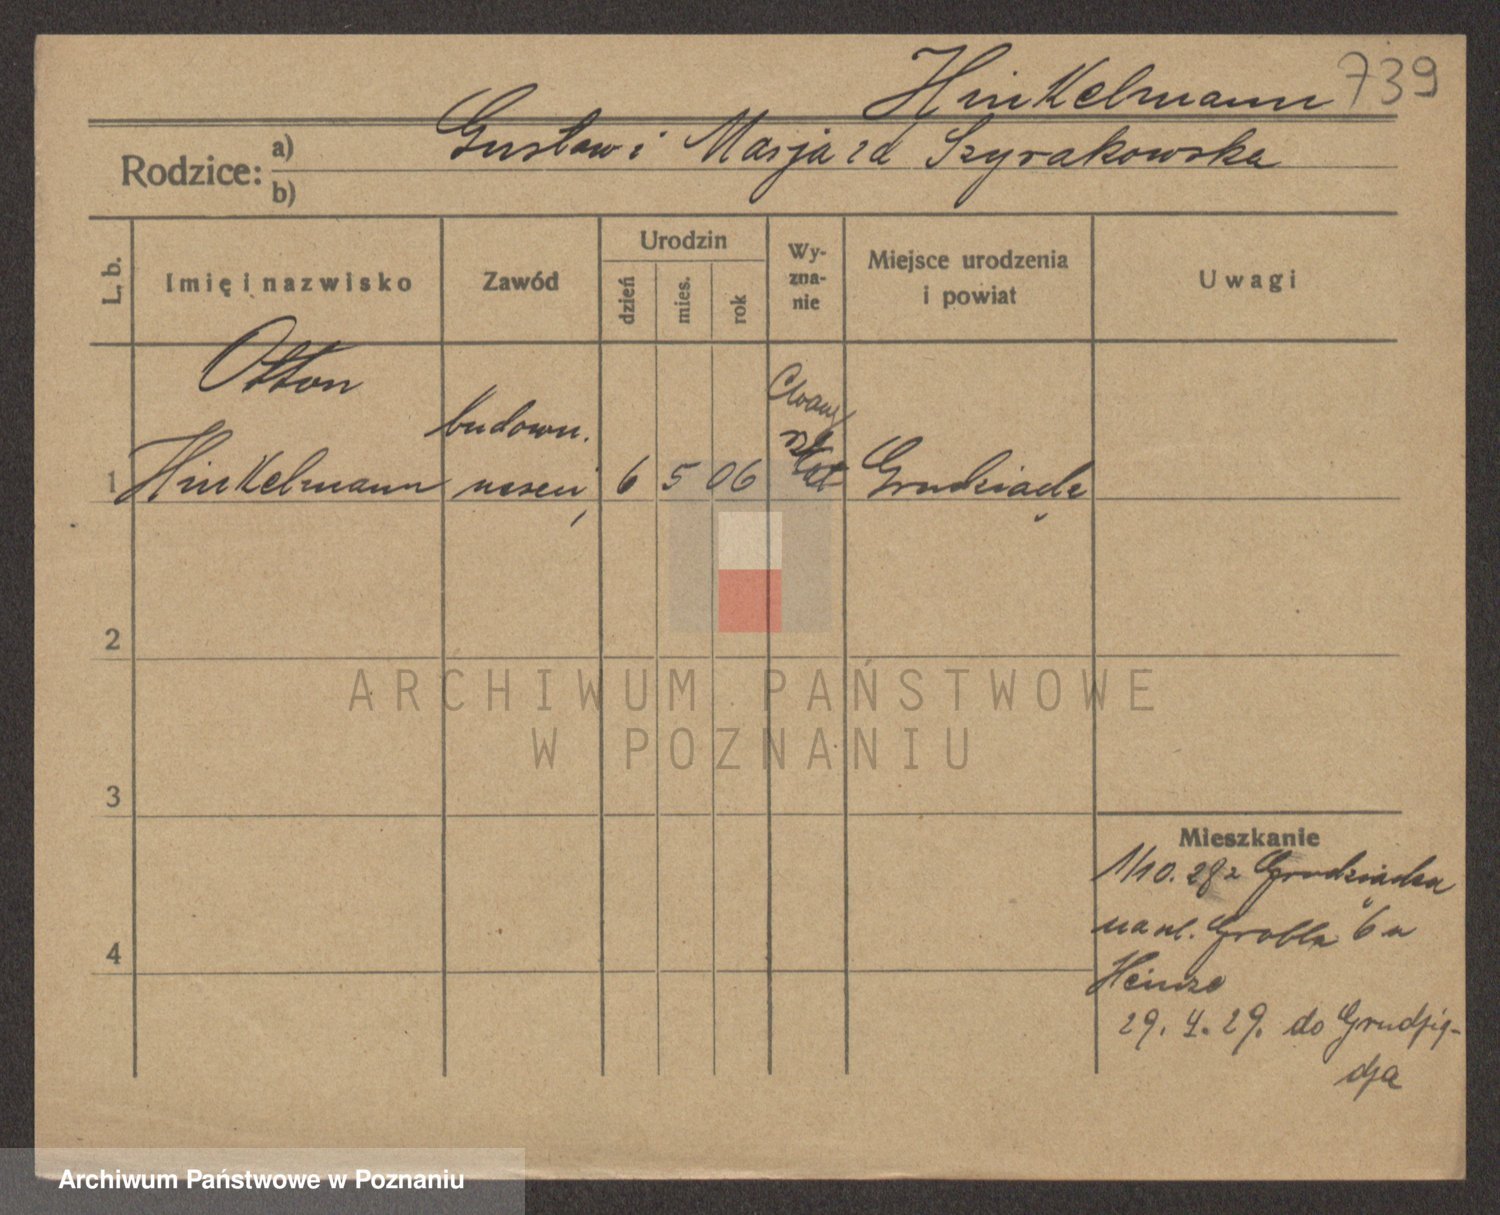 Hinkelmann 739
Rodzice: a) Gustaw i Marja zd Szyrakowska
b)
L. b. Imię i nazwisko Zawód Urodzin dzień mies. rok Wy-zna-nie Miejsce urodzenia i powiat Uwagi
Otton
budown.
1 Hinkelmann uczeń 6 5 06 Grudziądz
2
ARCHIWUM PAŃSTWOWE
W POZNANIU
3
Mieszkanie
1/10. 28 z Grudziądza
na ul. Grobla 6 u
4
Heinze
29. 4. 29. do Grudzią-
dza
Archiwum Państwowe w Poznaniu